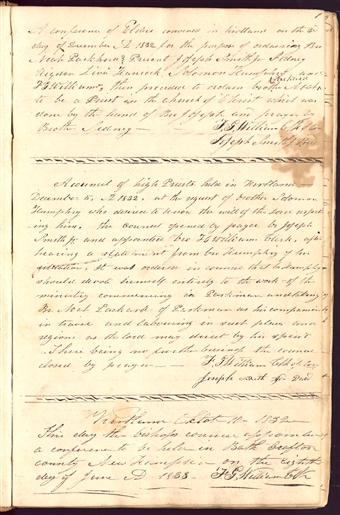 A conference of Elders convened in Kirtland on the 3d
day of December AD 1832 for the purpose of ordaining Bro
Noah Packard Present Joseph Smith Jr Sidney
Rigdon Levi Hancock Solomon Humphry and
F G Williams then proceeded to ordain brother Noah Packard
to be a Priest in the church of Christ which was
done by the hand of Bro Joseph prayer by
Broth Sidney — F. G. Williams Clk
Joseph Smith
A council of high Priests held in Kirtland
December 5, AD 1832, at the request of brother Solomon
Humphry who desired to know the will of the Lord respect
ing him, the council opened by prayer by Joseph
Smith Jr and appointed bro F G Williams Clerk, after
hearing a statement from bro Humphry of his
situation, It was ordered in council that bro Humphry
should devote himself entirely to the work of the
ministry commencing in Parkman and taking
Bro Noah Packard of Parkman as his companion
in travel and labouring in such places and
regions as the Lord may direct by his spirit
There being no further business the council
closed by prayer — F. G. Williams Clk
Joseph Smith Jr
Kirtland Octob 10 — 1832
This day the bishops council appointed
a conference to be held in Bath Grafton
county New Hampshire on the eighth
day of June AD 1833 — F G Williams Clk